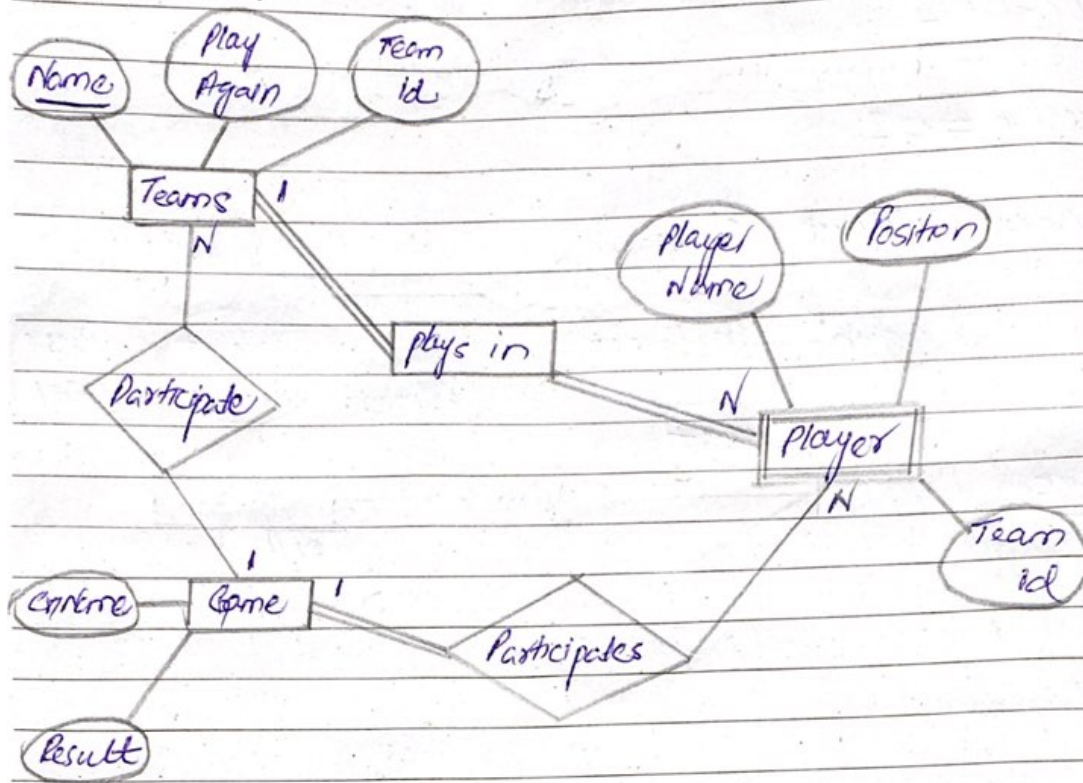 Name
Play
Again
Team
id
Teams
1
N
Player
Name
Position
plays in
Participate
N
Player
N
Team
id
1
1
Game
Participates
Result